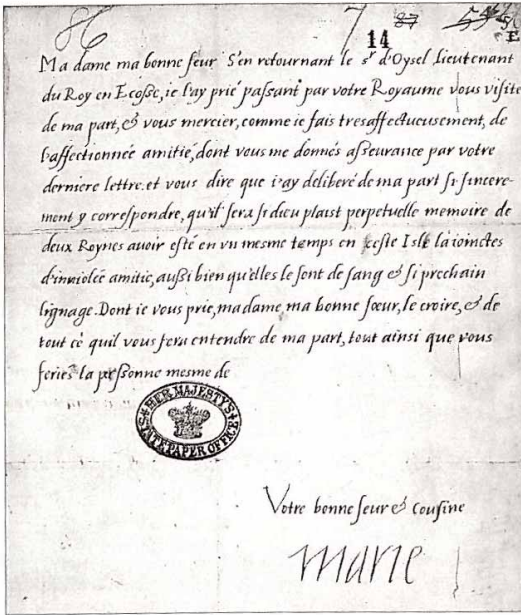 86 7 87
14
E
Ma dame ma bonne seur S'en retournant le sr d'Oysel Lieutenant
du Roy en Ecosse, ie l'ay prié passant par votre Royaume vous visite
de ma part, & vous mercier, comme ie fais tresaffectueusement, de
l'affectionnée amitié, dont vous me donnés asseurance par votre
derniere lettre. et vous dire que i'ay deliberé de ma part si sincere-
ment y correspondre, qu'il sera si dieu plaist perpetuelle memoire de
deux Roynes auoir esté en vn mesme temps en ceste Isle la ioinctes
d'inuiolée amitié, aussi bien qu'elles le sont de sang & si prochain
lignage. Dont ie vous prie, ma dame, ma bonne sœur, le croire, & de
tout cè quil vous fera entendre de ma part, tout ainsi que vous
feriés la personne mesme de
HER MAJESTY'S
STATE PAPER OFFICE
Votre bonne seur & cousine
Marie